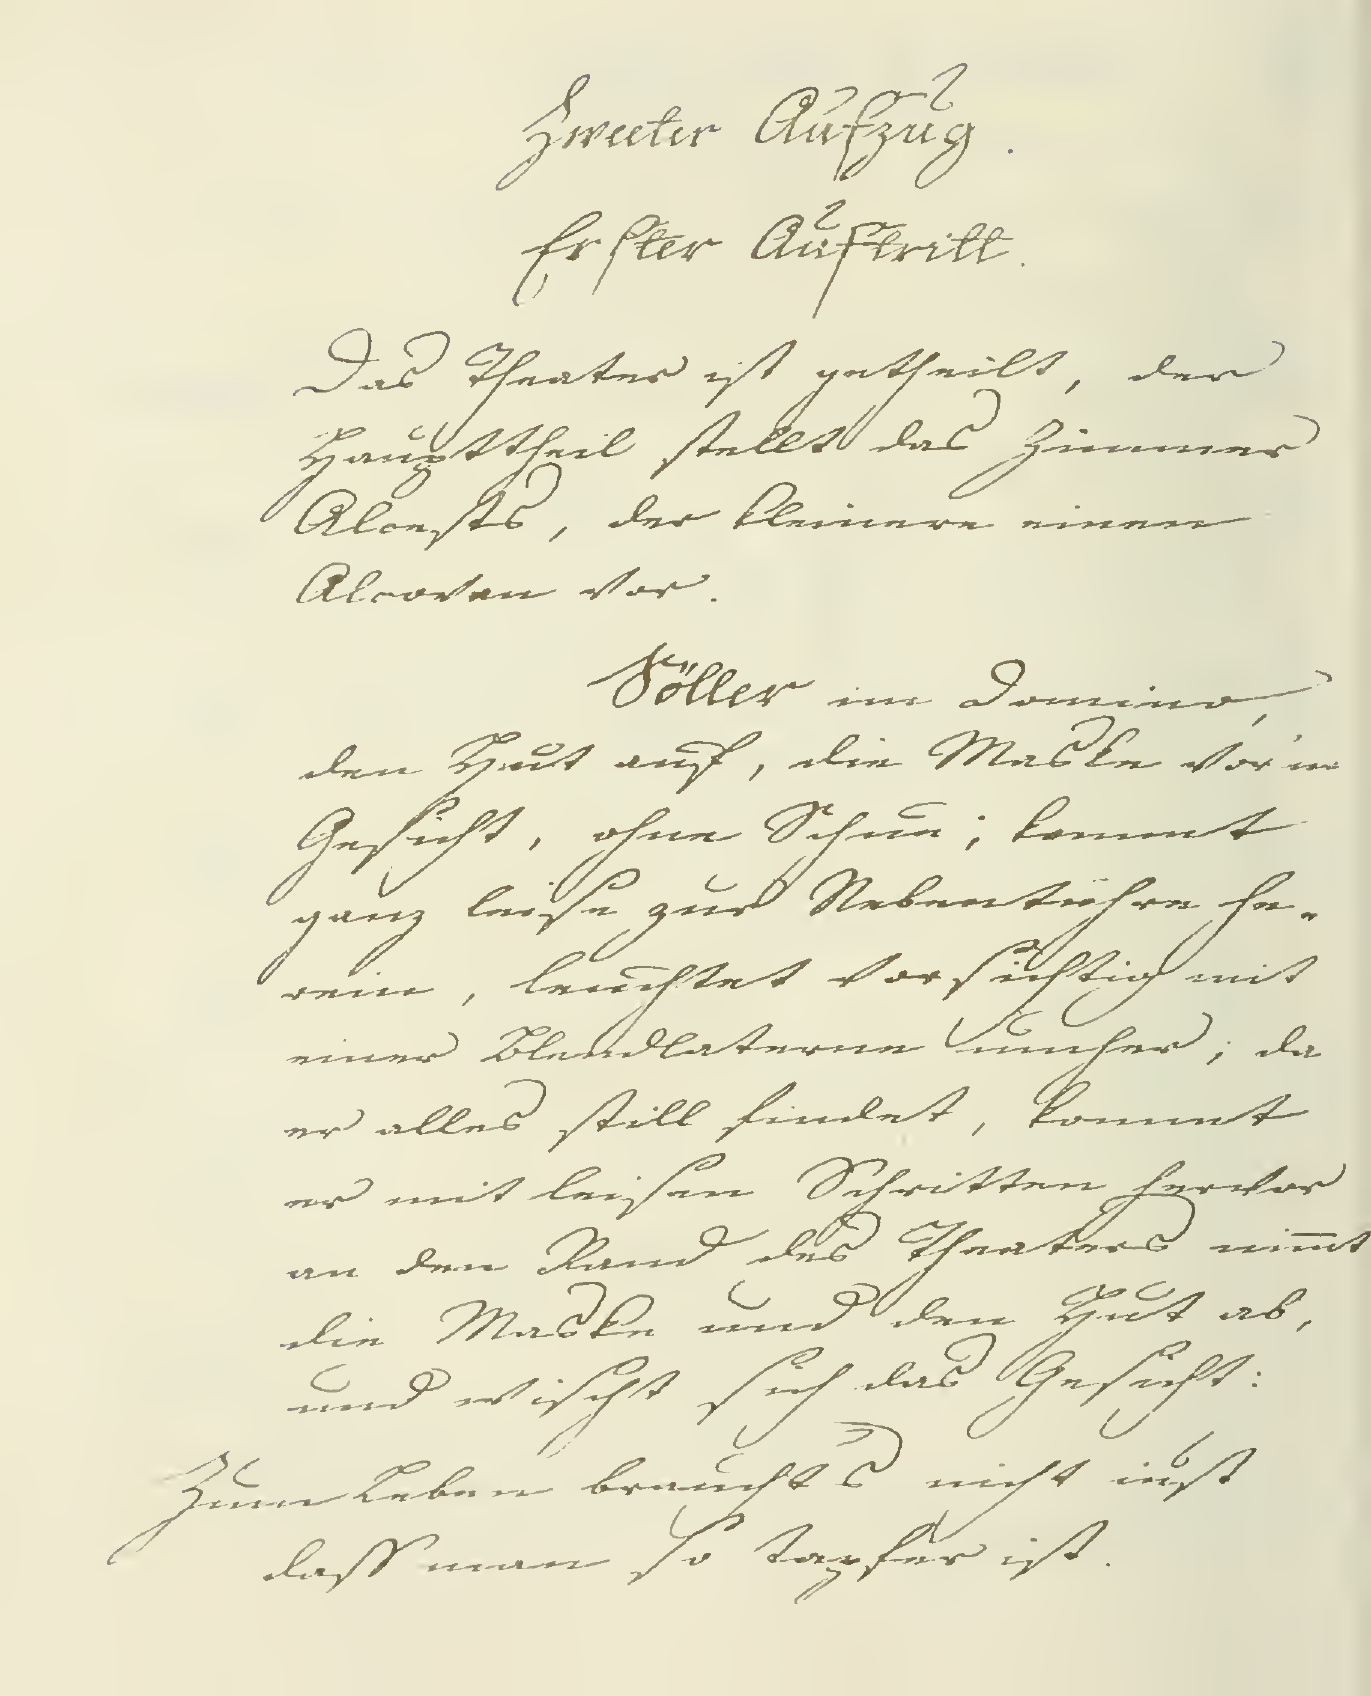 Zweeter Aufzug.
Erster Auftritt.
Das Theater ist getheilt, der
Haupttheil stellt das Zimmer
Alcests, der kleinere einen
Alcoven vor.
Söller im Domino,
den Hut auf, die Maske vor'm
Gesicht, ohne Schue; kommt
ganz leise zur Nebentühre he-
rein, leuchtet vorsichtig mit
einer Blendlaterne umher; da
er alles still findet, kommt
er mit leisen Schritten hervor
an den Rand des Theaters nim̅t
die Maske und den Hut ab,
und wischt sich das Gesicht:
Zum Leben braucht's nicht iust
dass man so tapfer ist.